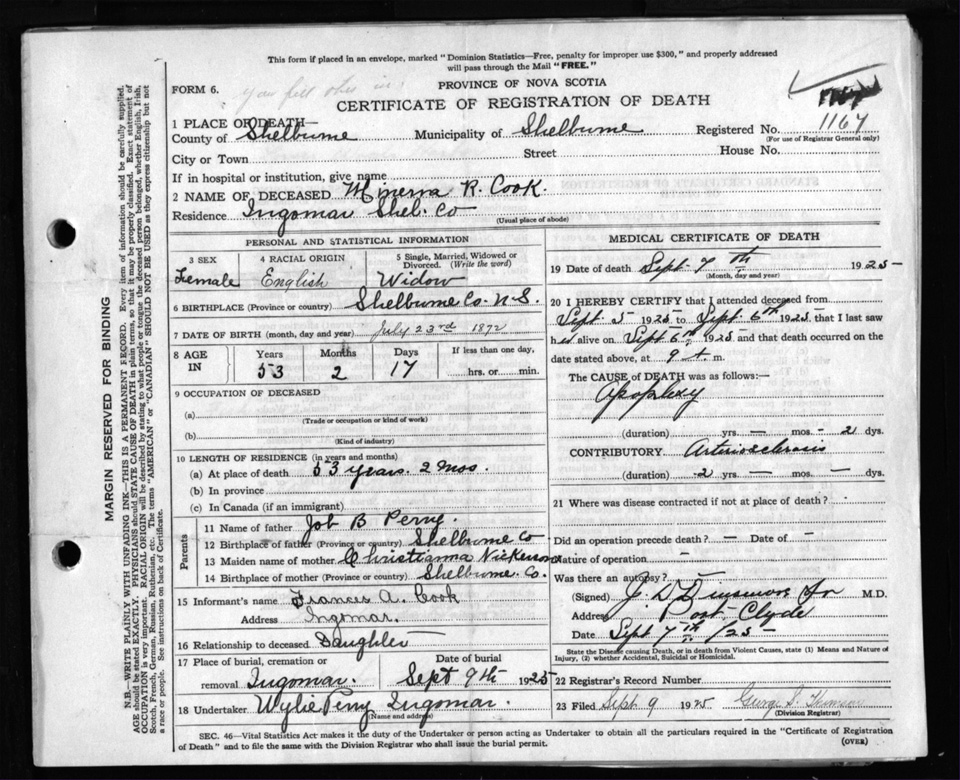 This form if placed in an envelope, marked "Dominion Statistics—Free, penalty for improper use $300," and properly addressed
will pass through the Mail "FREE."
FORM 6.
PROVINCE OF NOVA SCOTIA
CERTIFICATE OF REGISTRATION OF DEATH
1 PLACE OF DEATH—
County of Shelburne Municipality of Shelburne Registered No. 1167
(For use of Registrar General only)
City or Town Street House No.
If in hospital or institution, give name
2 NAME OF DECEASED Minerva R. Cook.
Residence Ingomar Shel. Co
(Usual place of abode)
PERSONAL AND STATISTICAL INFORMATION
3 SEX 4 RACIAL ORIGIN 5 Single, Married, Widowed or Divorced. (Write the word)
Female English Widow
6 BIRTHPLACE (Province or country) Shelburne Co. N.S.
7 DATE OF BIRTH (month, day and year) July 23rd 1872
8 AGE IN Years Months Days If less than one day,
53 2 17 hrs. or min.
9 OCCUPATION OF DECEASED
(a)
(Trade or occupation or kind of work)
(b)
(Kind of industry)
10 LENGTH OF RESIDENCE (in years and months)
(a) At place of death 53 years. 2 mos.
(b) In province
(c) In Canada (if an immigrant)
Parents
11 Name of father Job B Perry.
12 Birthplace of father (Province or country) Shelburne Co
13 Maiden name of mother Christianna Nickerson
14 Birthplace of mother (Province or country) Shelburne Co.
15 Informant's name Frances A. Cook
Address Ingomar.
16 Relationship to deceased Daughter
17 Place of burial, cremation or removal Ingomar. Date of burial Sept 9th 1925
18 Undertaker Wylie Perry Ingomar.
(Name and address)
MEDICAL CERTIFICATE OF DEATH
19 Date of death Sept 7th 1925
(Month, day and year)
20 I HEREBY CERTIFY that I attended deceased from
Sept. 5 1925 to Sept 6th 1925 that I last saw
h alive on Sept 6th 1925 and that death occurred on the
date stated above, at 9 m.
The CAUSE of DEATH was as follows:—
Apoplexy
(duration) yrs. — mos. - 2 dys.
CONTRIBUTORY Arteriosclerosis
(duration) 2 yrs. — mos. — dys.
21 Where was disease contracted if not at place of death?
Did an operation precede death? — Date of —
Nature of operation —
Was there an autopsy?
(Signed) J. D. Dinsmore M.D.
Address Port Clyde
Date Sept 7th /25
State the Disease causing Death, or in death from Violent Causes, state (1) Means and Nature of
Injury, (2) whether Accidental, Suicidal or Homicidal.
22 Registrar's Record Number
23 Filed Sept 9 1925 George S.
(Division Registrar)
SEC. 46—Vital Statistics Act makes it the duty of the Undertaker or person acting as Undertaker to obtain all the particulars required in the "Certificate of Registration
of Death" and to file the same with the Division Registrar who shall issue the burial permit.
(OVER)
MARGIN RESERVED FOR BINDING
N.B.—WRITE PLAINLY WITH UNFADING INK—THIS IS A PERMANENT RECORD. Every item of information should be carefully supplied.
AGE should be stated EXACTLY. PHYSICIANS should STATE CAUSE OF DEATH in plain terms, so that it may be properly classified. Exact statement of
OCCUPATION is very important. RACIAL ORIGIN will be described by stating to what people or tongue the deceased person belonged, whether English, Irish,
Scotch, French, German, Russian, Ruthenian, etc. The terms "AMERICAN" or "CANADIAN" SHOULD NOT BE USED as they express citizenship but not
a race or people. See instructions on back of Certificate.